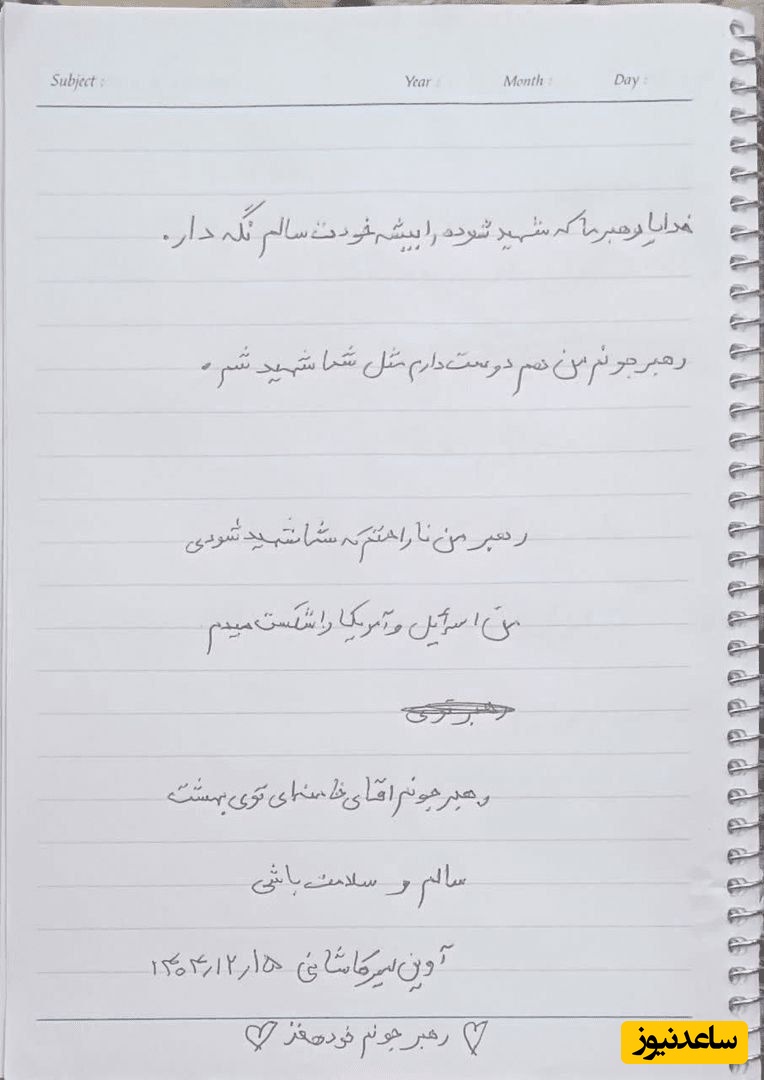 Subject : Year : Month : Day :
خدایا رهبر ما که شهید شوده را پیشه خودت سالم نگه دار.
رهبر جونم من هم دوست دارم مثل شما شهید شم.
رهبر من ناراحتم که شما شهید شودی
من اسرائیل و آمریکا را شکست میدم
رهبر توی
رهبر جونم اقای خامنه‌ای توی بهشت
سالم و سلامت باشی
آوین میرکاشانی ۱۴۰۴/۱۲/۱۵
رهبر جونم خودهافز
ساعدنیوز